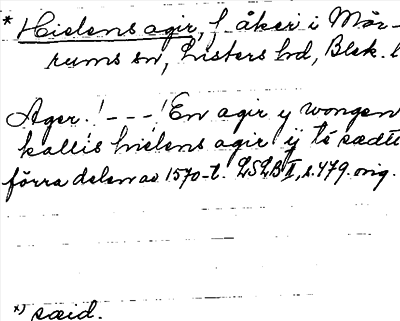 * Hielens agir, f. åker i Mör-
rums sn, Listers hd, Blek. l
Ager. ! - - - ! En agir y wongen
kallis hielens agir ij té sædt
förra delen av 1570-t. LSLB II, s. 479. orig.
*) sæid.